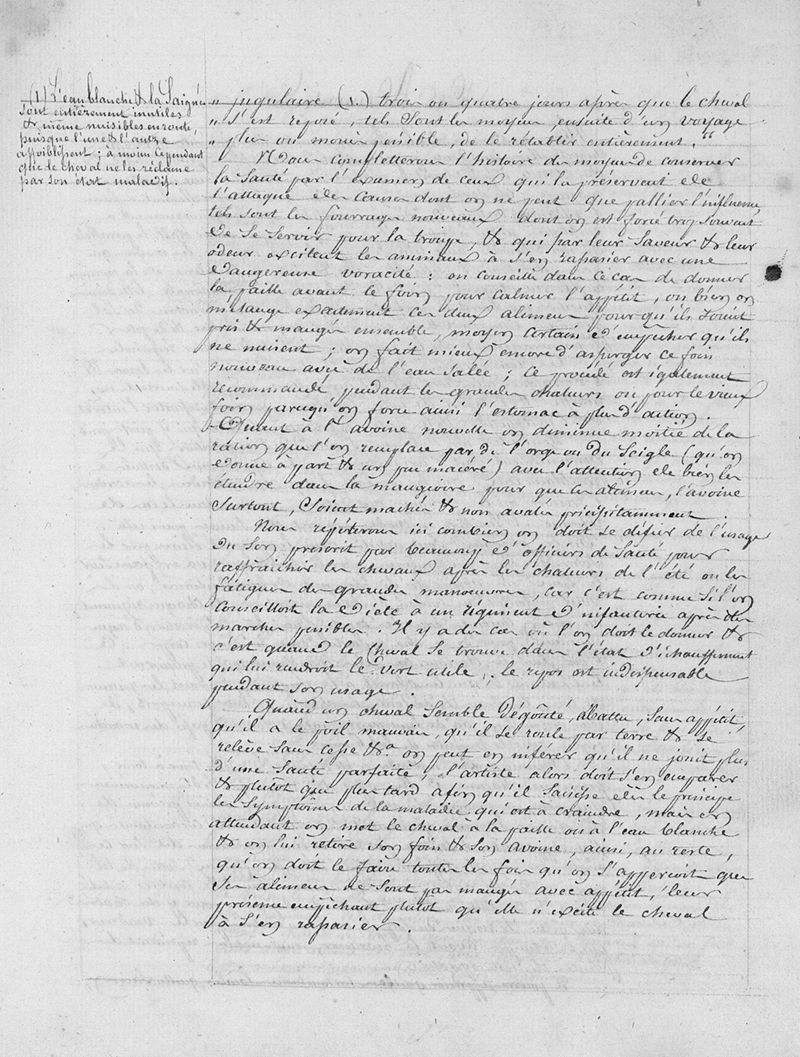 (1) L'eau blanche & la Saignée
sont entièrement inutiles
& même nuisibles en route,
puisque l'une & l'autre
affoiblissent ; à moins cependant
que le cheval ne les réclame
par son état maladif.
„ jugulaire (1.) trois ou quatre jours après que le cheval
„ s'est reposé, tels sont les moyens, ensuite d'un voyage
„ plus ou moins pénible, de le rétablir entièrement."
Nous completterons l'histoire des moyens de conserver
la Santé par l'examen de ceux qui la préservent de
l'attaque des causes dont on ne peut que pallier l'influence
tels sont les fourrages nouveaux dont on est forcé trop souvent
de se servir pour la troupe, & qui par leur saveur & leur
odeur excitent les animaux à s'en rassasier avec une
dangereuse voracité : on conseille dans ce cas de donner
la paille avant le foin pour calmer l'appétit, ou bien on
mélange exactement ces deux alimens pour qu'ils soient
pris & mangés ensemble, moyen certain d'empêcher qu'ils
ne nuisent ; on fait mieux encore d'asperger ce foin
nouveau avec de l'eau salée ; ce procédé est également
recommandé pendant les grandes chaleurs ou pour le vieux
foin parcequ'on force ainsi l'estomac à plus d'action.
Quant à l'avoine nouvelle on diminue moitié de la
ration que l'on remplace par de l'orge ou du Seigle (qu'on
donne à part & un peu macéré) avec l'attention de bien les
étendre dans la mangeoire pour que ces alimens, l'avoine
surtout, soient machés & non avalés précipitamment.
Nous répéterons ici combien on doit se défier de l'usage
du Son prescrit par beaucoup d'officiers de Santé pour
raffraichir les chevaux après les chaleurs de l'été ou les
fatigues des grandes manoeuvres, car c'est comme si l'on
conseilloit la diète à un régiment d'infanterie après des
marches pénibles. Il y a des cas où l'on doit le donner &
c'est quand le cheval se trouve dans l'état d'échauffement
qui lui rendroit le vert utile ; le repos est indispensable
pendant son usage.
Quand un cheval semble dégoûté, abattu, sans appétit,
qu'il a le poil mauvais, qu'il se roule par terre & se
relève sans cesse &a on peut en inférer qu'il ne jouit plus
d'une Santé parfaite ; l'artiste alors doit s'en emparer
& plutot que plus tard afin qu'il saisisse dès le principe
les symptômes de la maladie qui est à craindre, mais en
attendant on met le cheval à la paille ou à l'eau blanche
& on lui retire son foin & son avoine, ainsi, au reste,
qu'on doit le faire toutes les fois qu'on s'apperçoit que
ses alimens ne sont pas mangés avec appétit, leur
présence empêchant plutot qu'elle n'excite le cheval
à s'en rassasier.